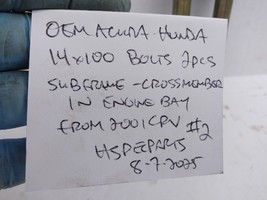 OEM ACURA HONDA
14x100 BOLTS 2PCS
SUBFRAME - CROSSMEMBER
IN ENGINE BAY
FROM 2001 CRV #2
HSPEEPARTS
8-7-2025